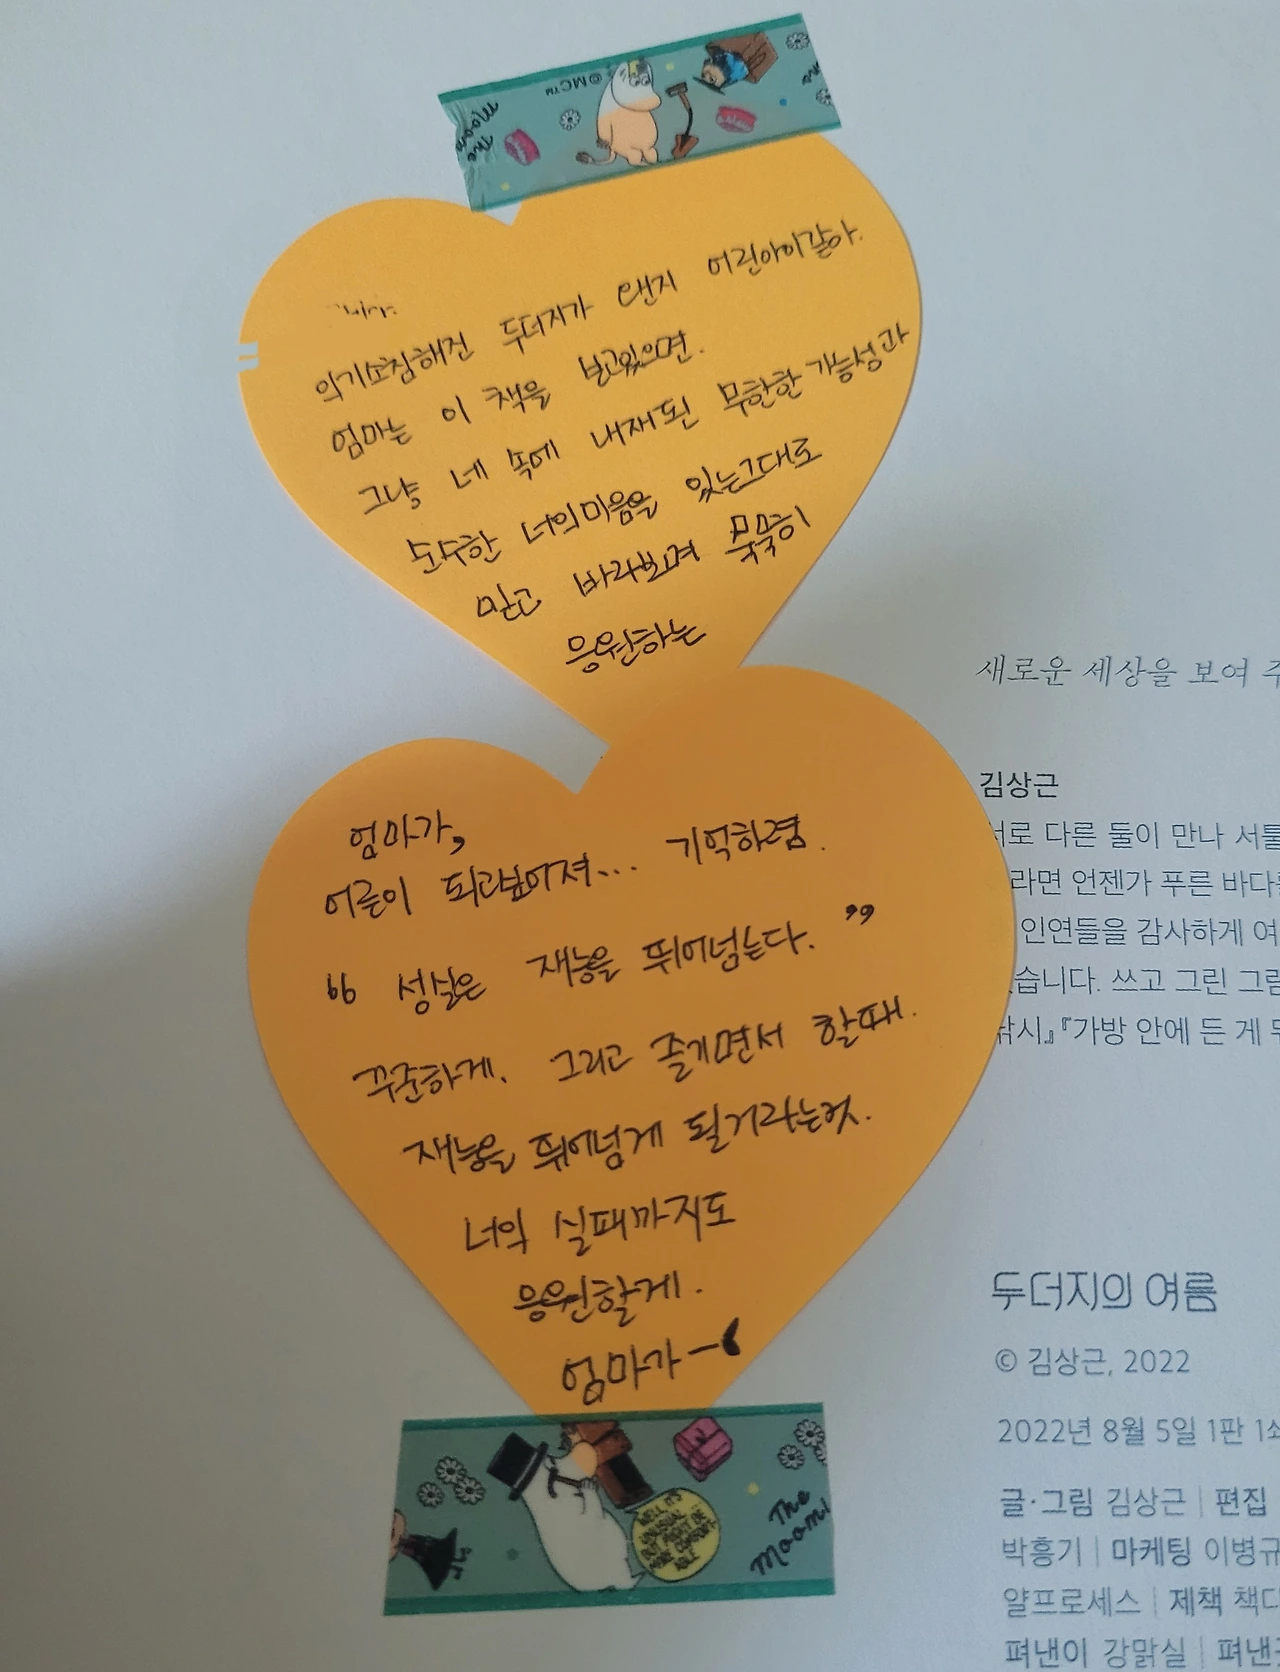 The Moomi
©MC™
의기소침해진 두더지가 왠지 어린아이같아.
엄마는 이 책을 보고있으면.
그냥 네 속에 내재된 무한한 가능성과
순수한 너의마음을 있는그대로
믿고 바라보며 묵묵히
응원하는
엄마가,
어른이 되라싶어져... 기억하렴.
“ 성실은 재능을 뛰어넘는다. ”
꾸준하게. 그리고 즐기면서 할때.
재능을 뛰어넘게 될거라는것.
너의 실패까지도
응원할게.
엄마가
WELL, IT'S
The Moomi
새로운 세상을 보여 주
김상근
서로 다른 둘이 만나 서툴
라면 언젠가 푸른 바다를
인연들을 감사하게 여
습니다. 쓰고 그린 그림
낚시』 『가방 안에 든 게
두더지의 여름
© 김상근, 2022
2022년 8월 5일 1판 1쇄
글·그림 김상근 | 편집
박흥기 | 마케팅 이병규
얄프로세스 | 제책 책다
펴낸이 강맑실 | 펴낸곳